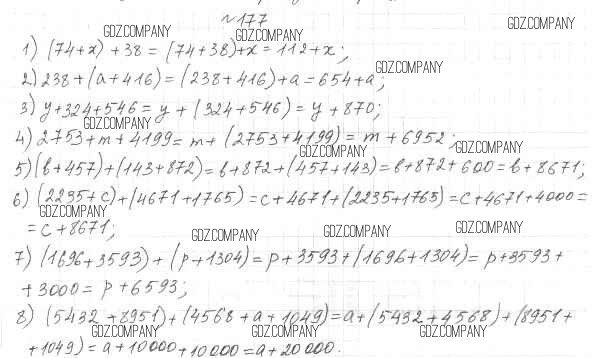 №177
GDZ.COMPANY
GDZ.COMPANY
GDZ.COMPANY
1) (74+x) + 38 = (74+38)+x = 112+x;
GDZ.COMPANY
2) 238 + (a+416) = (238+416)+a = 654+a;
3) y+324+546 = y + (324+546) = y + 870;
GDZ.COMPANY
4) 2753+m+4199 = m+(2753+4199) = m+6952;
GDZ.COMPANY
GDZ.COMPANY
5) (b+457)+(143+872) = b+872+(457+143) = b+872+600 = b+8671;
6) (2235+c)+(4671+1765) = c+4671+(2235+1765) = c+4671+4000 =
GDZ.COMPANY
= c+8671;
GDZ.COMPANY
GDZ.COMPANY
GDZ.COMPANY
7) (1696+3593) + (p+1304) = p+3593+(1696+1304) = p+3593+
+3000 = p+6593;
8) (5432+8951)+(4568+a+1049) = a+(5432+4568)+(8951+
GDZ.COMPANY
GDZ.COMPANY
GDZ.COMPANY
+1049) = a+10000+10000 = a+20000.